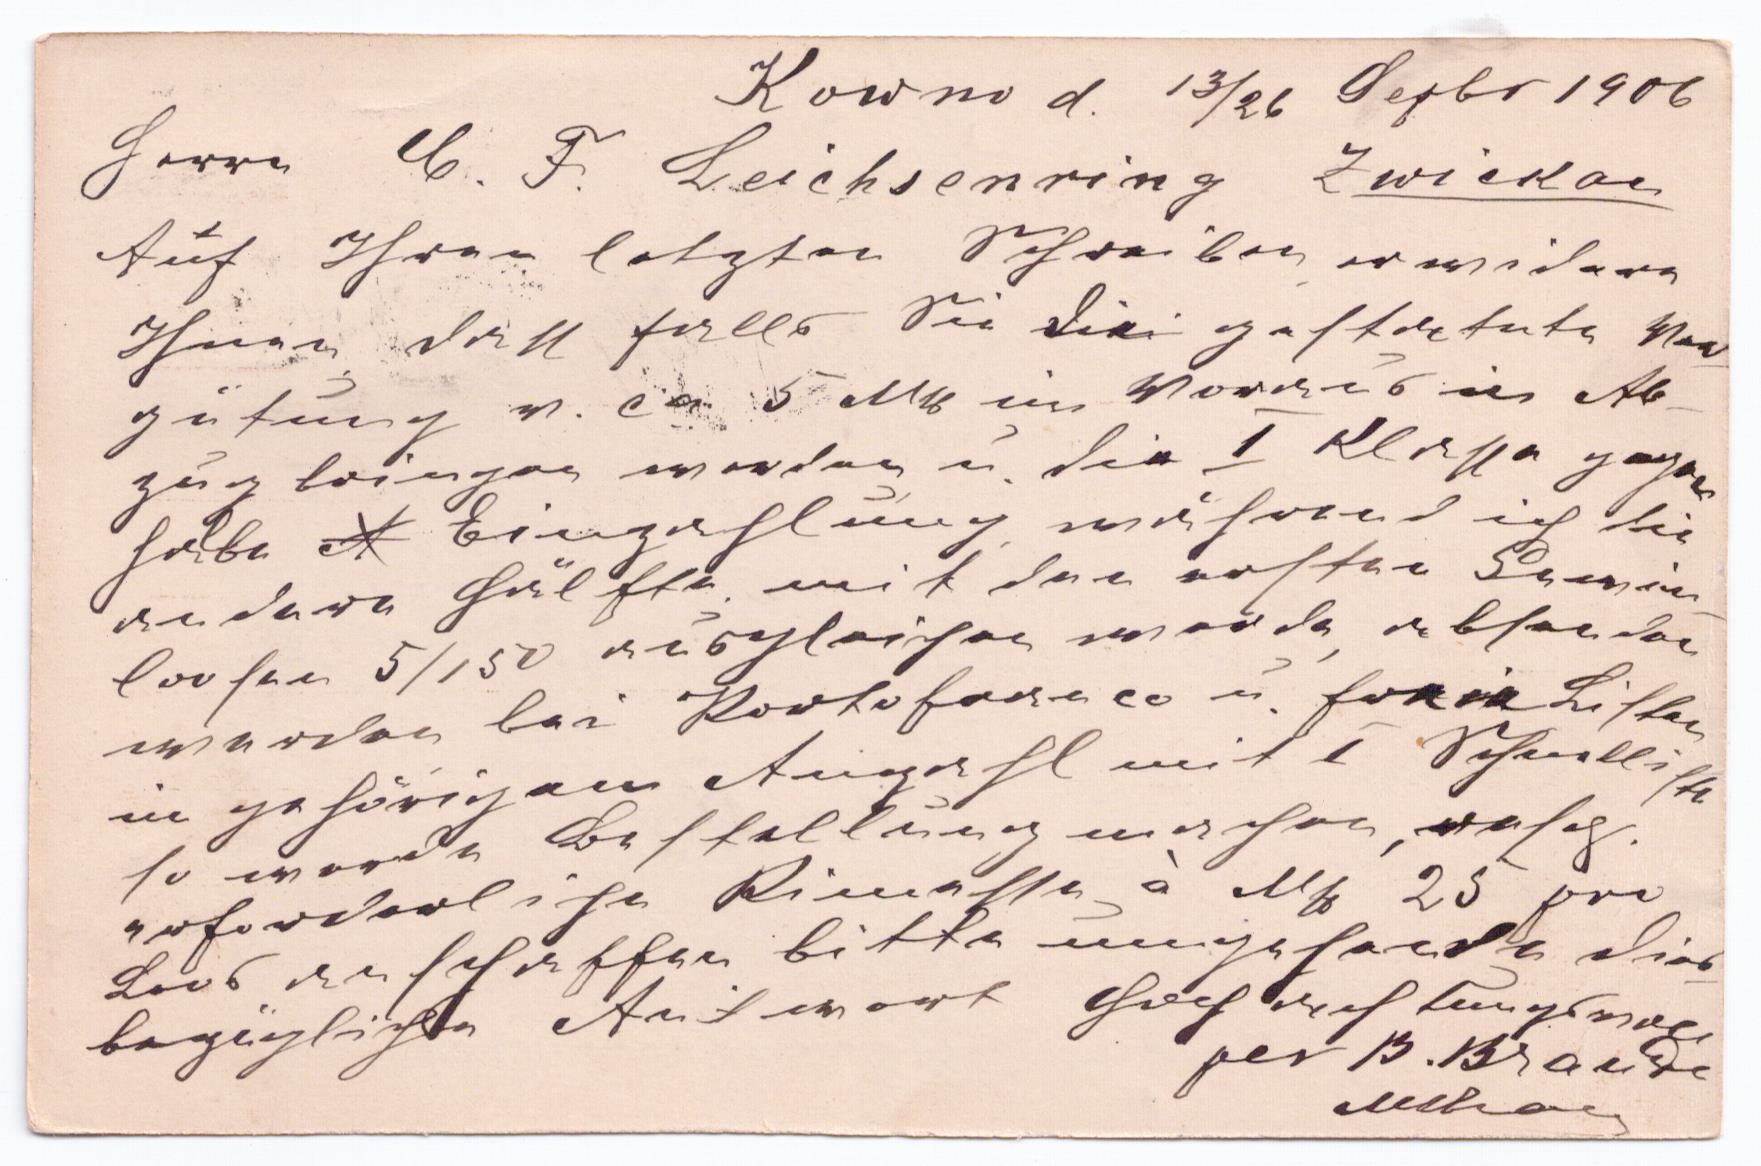 Kowno d. 13/26 Septbr 1906
Herrn C. F. Leichsenring Zwickau
Auf Ihren letzten Schreiben erwidere
Ihnen dass falls Sie die gestattete Ver-
gütung v. ca 5 Mk im Voraus in Ab-
zug bringen werden u. die I Klasse gegen
halbe Einzahlung, während ich die
andere Hälfte mit den ersten Gewinn-
loosen 5/150 ausgleichen werde, absenden
werden bei Portofranco u. freie Listen
in gehörigem Anzahl mit 1 Schnellliste
so werde Bestellung machen,
erforderliche Rimesse à Mk 25 pro
Loos anschaffen bitte umgehende dies-
bezügliche Antwort Hochachtungsvoll
per B. Braude